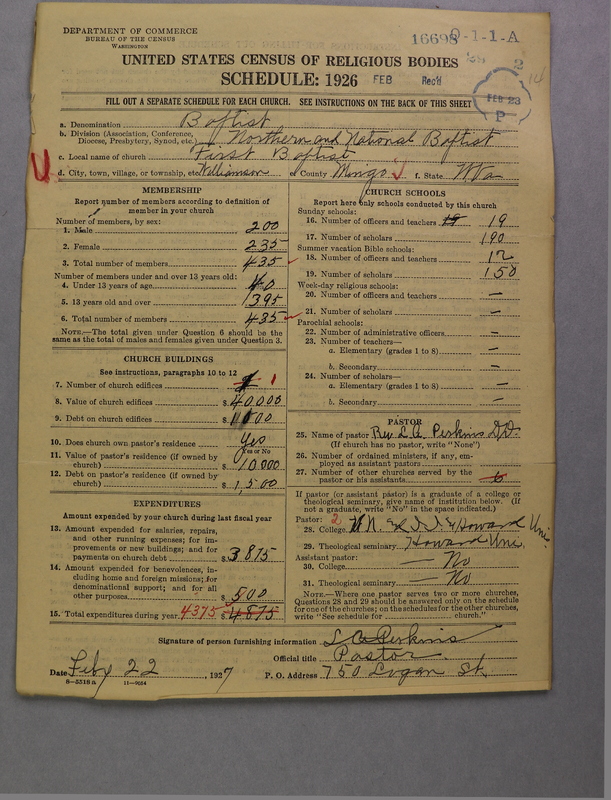 DEPARTMENT OF COMMERCE
BUREAU OF THE CENSUS
WASHINGTON
16698 0-1-1-A
UNITED STATES CENSUS OF RELIGIOUS BODIES
SCHEDULE: 1926
FEB Rec'd
FEB 23 P
2
14
FILL OUT A SEPARATE SCHEDULE FOR EACH CHURCH. SEE INSTRUCTIONS ON THE BACK OF THIS SHEET
a. Denomination Baptist
b. Division (Association, Conference, Diocese, Presbytery, Synod, etc.) Northern and National Baptist
c. Local name of church First Baptist
d. City, town, village, or township, etc. Williamson e. County Mingo f. State W Va
MEMBERSHIP
Report number of members according to definition of member in your church
Number of members, by sex:
1. Male 200
2. Female 235
3. Total number of members 435
Number of members under and over 13 years old:
4. Under 13 years of age 40
5. 13 years old and over 395
6. Total number of members 435
NOTE.—The total given under Question 6 should be the same as the total of males and females given under Question 3.
CHURCH BUILDINGS
See instructions, paragraphs 10 to 12
7. Number of church edifices 1
8. Value of church edifices $ 40000
9. Debt on church edifices $ 1100
10. Does church own pastor's residence Yes
Yes or No
11. Value of pastor's residence (if owned by church) $ 10000
12. Debt on pastor's residence (if owned by church) $ 1,500
EXPENDITURES
Amount expended by your church during last fiscal year
13. Amount expended for salaries, repairs, and other running expenses; for improvements or new buildings; and for payments on church debt $ 3875
14. Amount expended for benevolences, including home and foreign missions; for denominational support; and for all other purposes $ 500
15. Total expenditures during year 4375 $ 4875
CHURCH SCHOOLS
Report here only schools conducted by this church
Sunday schools:
16. Number of officers and teachers 19 19
17. Number of scholars 190
Summer vacation Bible schools:
18. Number of officers and teachers 12
19. Number of scholars 150
Week-day religious schools:
20. Number of officers and teachers —
21. Number of scholars —
Parochial schools:
22. Number of administrative officers —
23. Number of teachers—
a. Elementary (grades 1 to 8) —
b. Secondary —
24. Number of scholars—
a. Elementary (grades 1 to 8) —
b. Secondary —
PASTOR
25. Name of pastor Rev L. A. Perkins D.D.
(If church has no pastor, write "None")
26. Number of ordained ministers, if any, employed as assistant pastors
27. Number of other churches served by the pastor or his assistants 6
If pastor (or assistant pastor) is a graduate of a college or theological seminary, give name of institution below. (If not a graduate, write "No" in the space indicated.)
Pastor: 2
28. College & Howard Uni
29. Theological seminary Howard Uni.
Assistant pastor:
30. College — No
31. Theological seminary — No
NOTE.—Where one pastor serves two or more churches, Questions 28 and 29 should be answered only on the schedule for one of the churches; on the schedules for the other churches, write "See schedule for church."
Signature of person furnishing information L A Perkins
Official title Pastor
Date Feby 22, 1927 P. O. Address 750 Logan St
8—5518a 11—9054